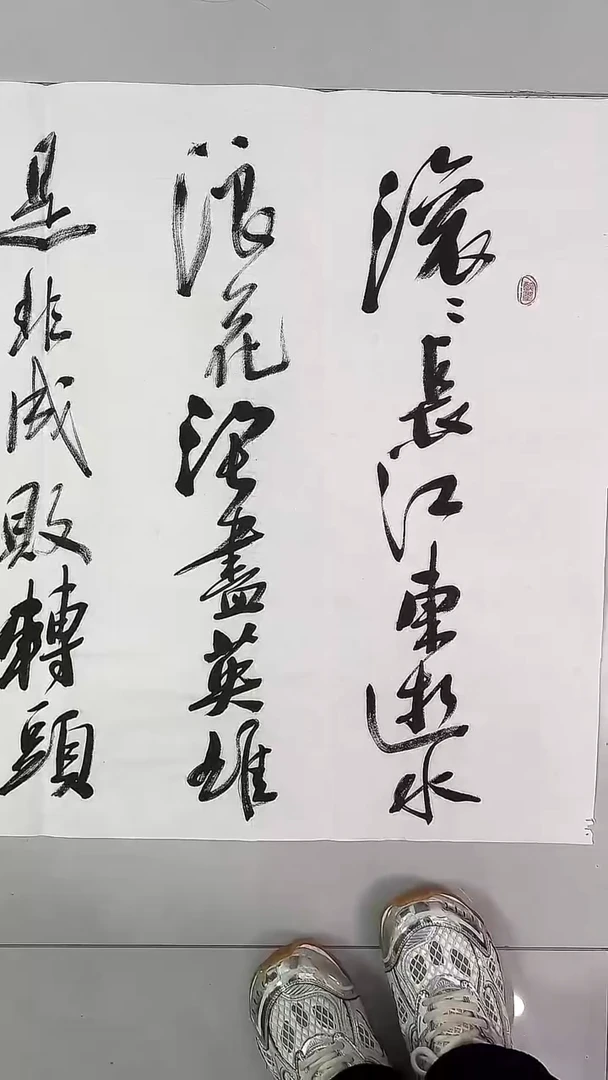 滚〻長江東逝水
浪花淘盡英雄
是非成敗轉頭